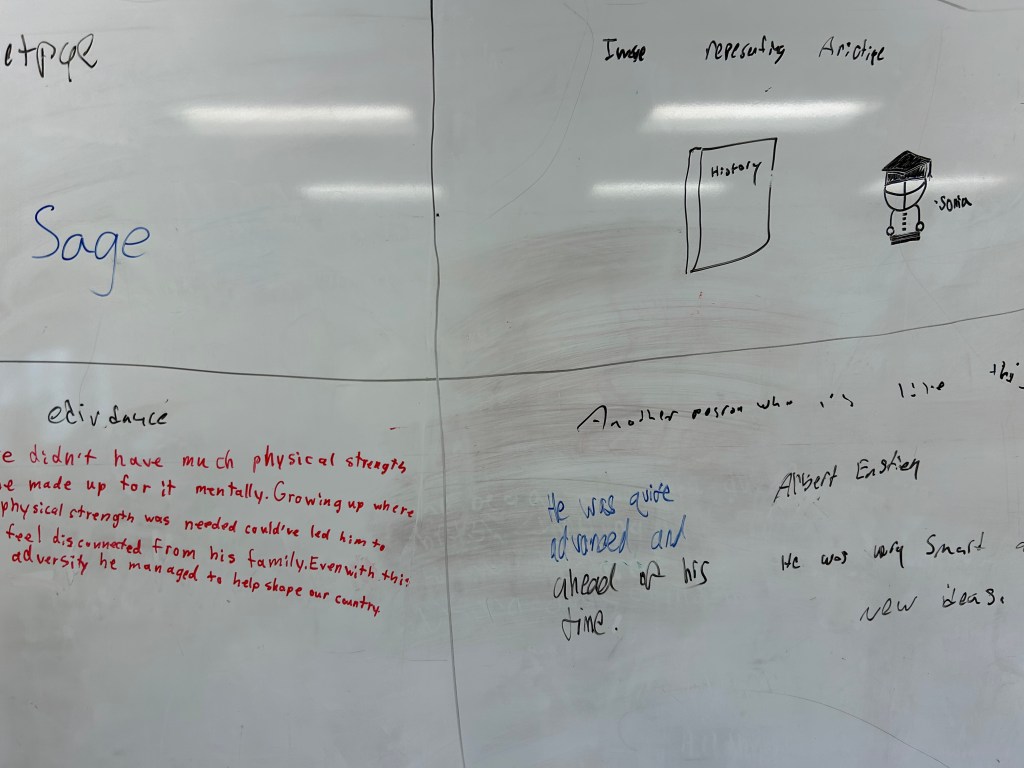 etpqe
Sage
Image repesenting Arictipe
History
Sonia
edivdance
e didn't have much physical strength
e made up for it mentally. Growing up where
physical strength was needed could've led him to
feel disconnected from his family. Even with this
adversity he managed to help shape our country
Another person who is like
He was quite
advanced and
ahead of his
time.
Albert Enstien
He was very Smart
new ideas.